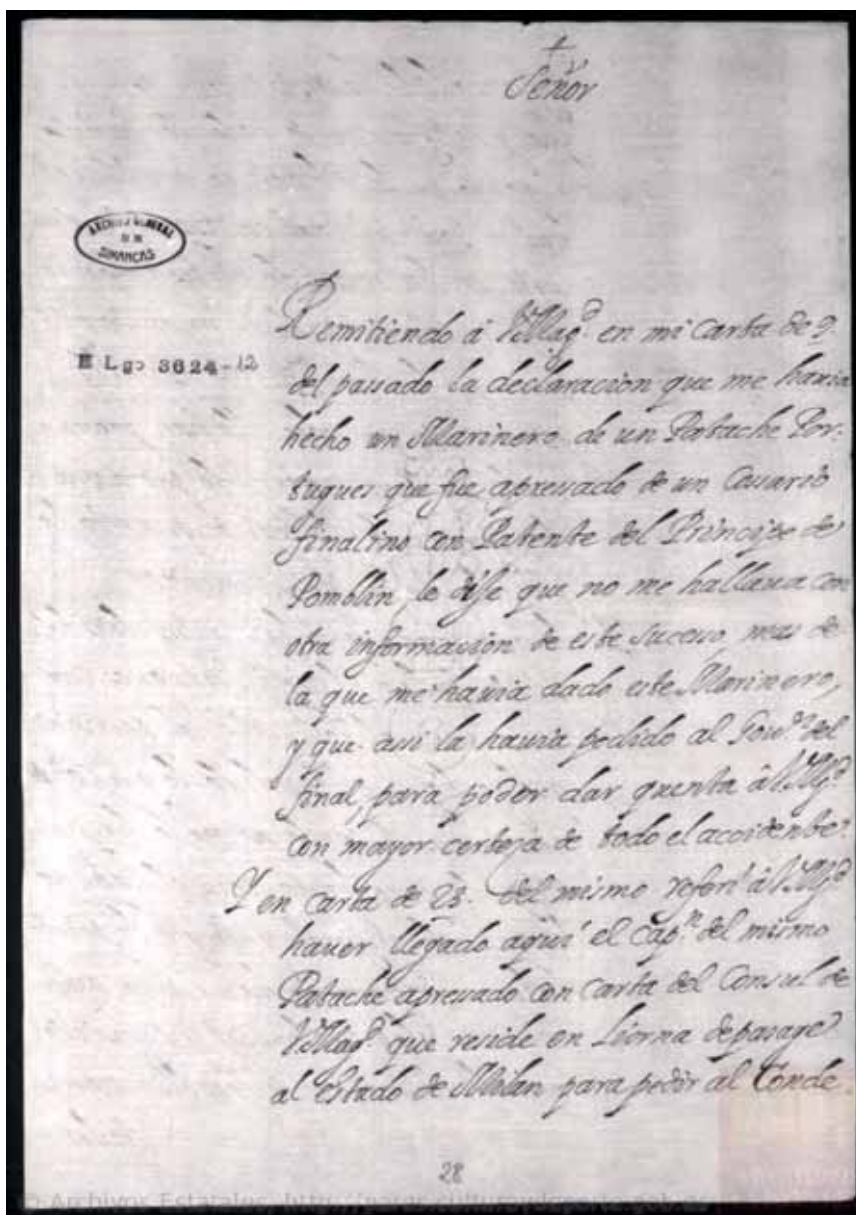 +
Señor
ARCHIVO GENERAL
DE
SIMANCAS
E Lgo 3624-12
Remitiendo á V.Magd. en mi carta de 9.
del passado la declaracion que me hauia
hecho un Marinero de un Patache Por-
tugues que fue apressado de un Cossario
finalino con Patente del Principe de
Pomblin, le dije que no me hallaua con
otra informacion de este sucesso, mas de
la que me hauia dado este Marinero,
y que assi la hauia pedido al Gour. del
final, para poder dar quenta á V.Mgd.
con mayor certeza de todo el accidente.
Y en carta de 23. del mismo referí á V.Mgd.
hauer llegado aqui el Capn. del mismo
Patache apressado con carta del Consul de
V.Magd. que reside en Liorna de passage
al Estado de Milan para pedir al Conde
28
© Archivos Estatales, http://pares.culturaydeporte.gob.es